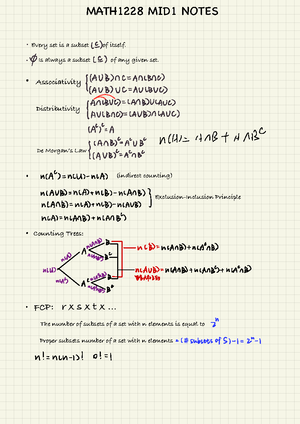 MATH1228 MID1 NOTES
• Every set is a subset (⊆) of itself.
• ∅ is always a subset (⊆) of any given set.
• Associativity { (A∪B)∩C = A∩(B∩C)
(A∪B)∪C = A∪(B∪C)
Distributivity { A∩(B∪C) = (A∩B)∪(A∩C)
A∪(B∩C) = (A∪B)∩(A∪C)
(Aᶜ)ᶜ = A
De Morgan's Law { (A∩B)ᶜ = Aᶜ∪Bᶜ
(A∪B)ᶜ = Aᶜ∩Bᶜ
n(A) = A∩B + A∩Bᶜ
• n(Aᶜ) = n(U) - n(A) (indirect counting)
n(A∪B) = n(A) + n(B) - n(A∩B)
n(A∩B) = n(A) + n(B) - n(A∪B) } Exclusion-Inclusion Principle
n(A) = n(A∩B) + n(A∩Bᶜ)
• Counting Trees:
n(U) n(A) A n(A∩B) B
n(A∩Bᶜ) Bᶜ
n(Aᶜ) Aᶜ n(Aᶜ∩B) B
Bᶜ
n(B) = n(A∩B) + n(Aᶜ∩B)
n(A∪B) = n(A∩B) + n(A∩Bᶜ) + n(Aᶜ∩B)
• FCP: r x s x t x ...
The number of subsets of a set with n elements is equal to 2ⁿ
Proper subsets number of a set with n elements = (# subsets of S) - 1 = 2ⁿ - 1
n! = n(n-1)! 0! = 1